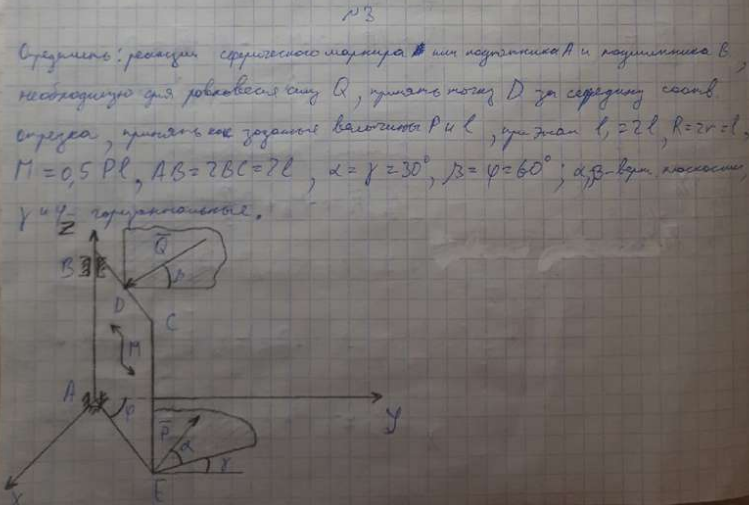 №3
Определить: реакции сферического шарнира или подпятника А и подшипника В,
необходимую для равновесия силу Q, принять точку D за середину соотв.
отрезка, принять как заданные величины P и l, при этом l₁=2l, R=2r=l,
M=0,5Pl, AB=2BC=2l, α=γ=30°, β=φ=60°; α,β-верт. плоскости,
γ и φ- горизонтальные.
Z
Q
B
β
D
C
M
A
φ
y
P
α
γ
E
x